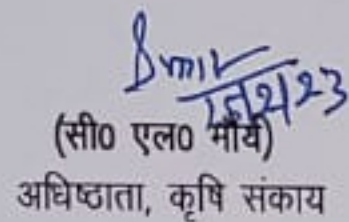 (सी0 एल0 मौर्य)
अधिष्ठाता, कृषि संकाय